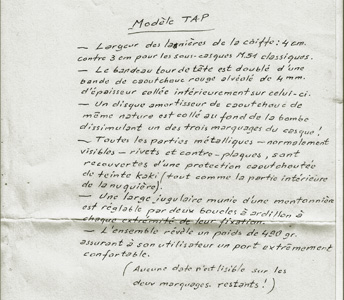 Modèle TAP
— Largeur des lanières de la coiffe : 4 cm.
contre 3 cm pour les sous-casques M.51 classiques.
— Le bandeau tour de tête est doublé d'une
bande de caoutchouc rouge alvéolé de 4 mm.
d'épaisseur collée intérieurement sur celui-ci.
— Un disque amortisseur de caoutchouc de
même nature est collé au fond de la bombe
dissimulant un des trois marquages du casque !
— Toutes les parties métalliques — normalement
visibles — rivets et contre-plaques, sont
recouvertes d'une protection caoutchoutée
de teinte kaki (tout comme la partie intérieure
de la nuquière).
— Une large jugulaire munie d'une mentonnière
est réglable par deux boucles à ardillon à
chaque extrémité de leur fixation.
— L'ensemble révèle un poids de 490 gr.
assurant à son utilisateur un port extrêmement
confortable.
(Aucune date n'est lisible sur les
deux marquages restants !)